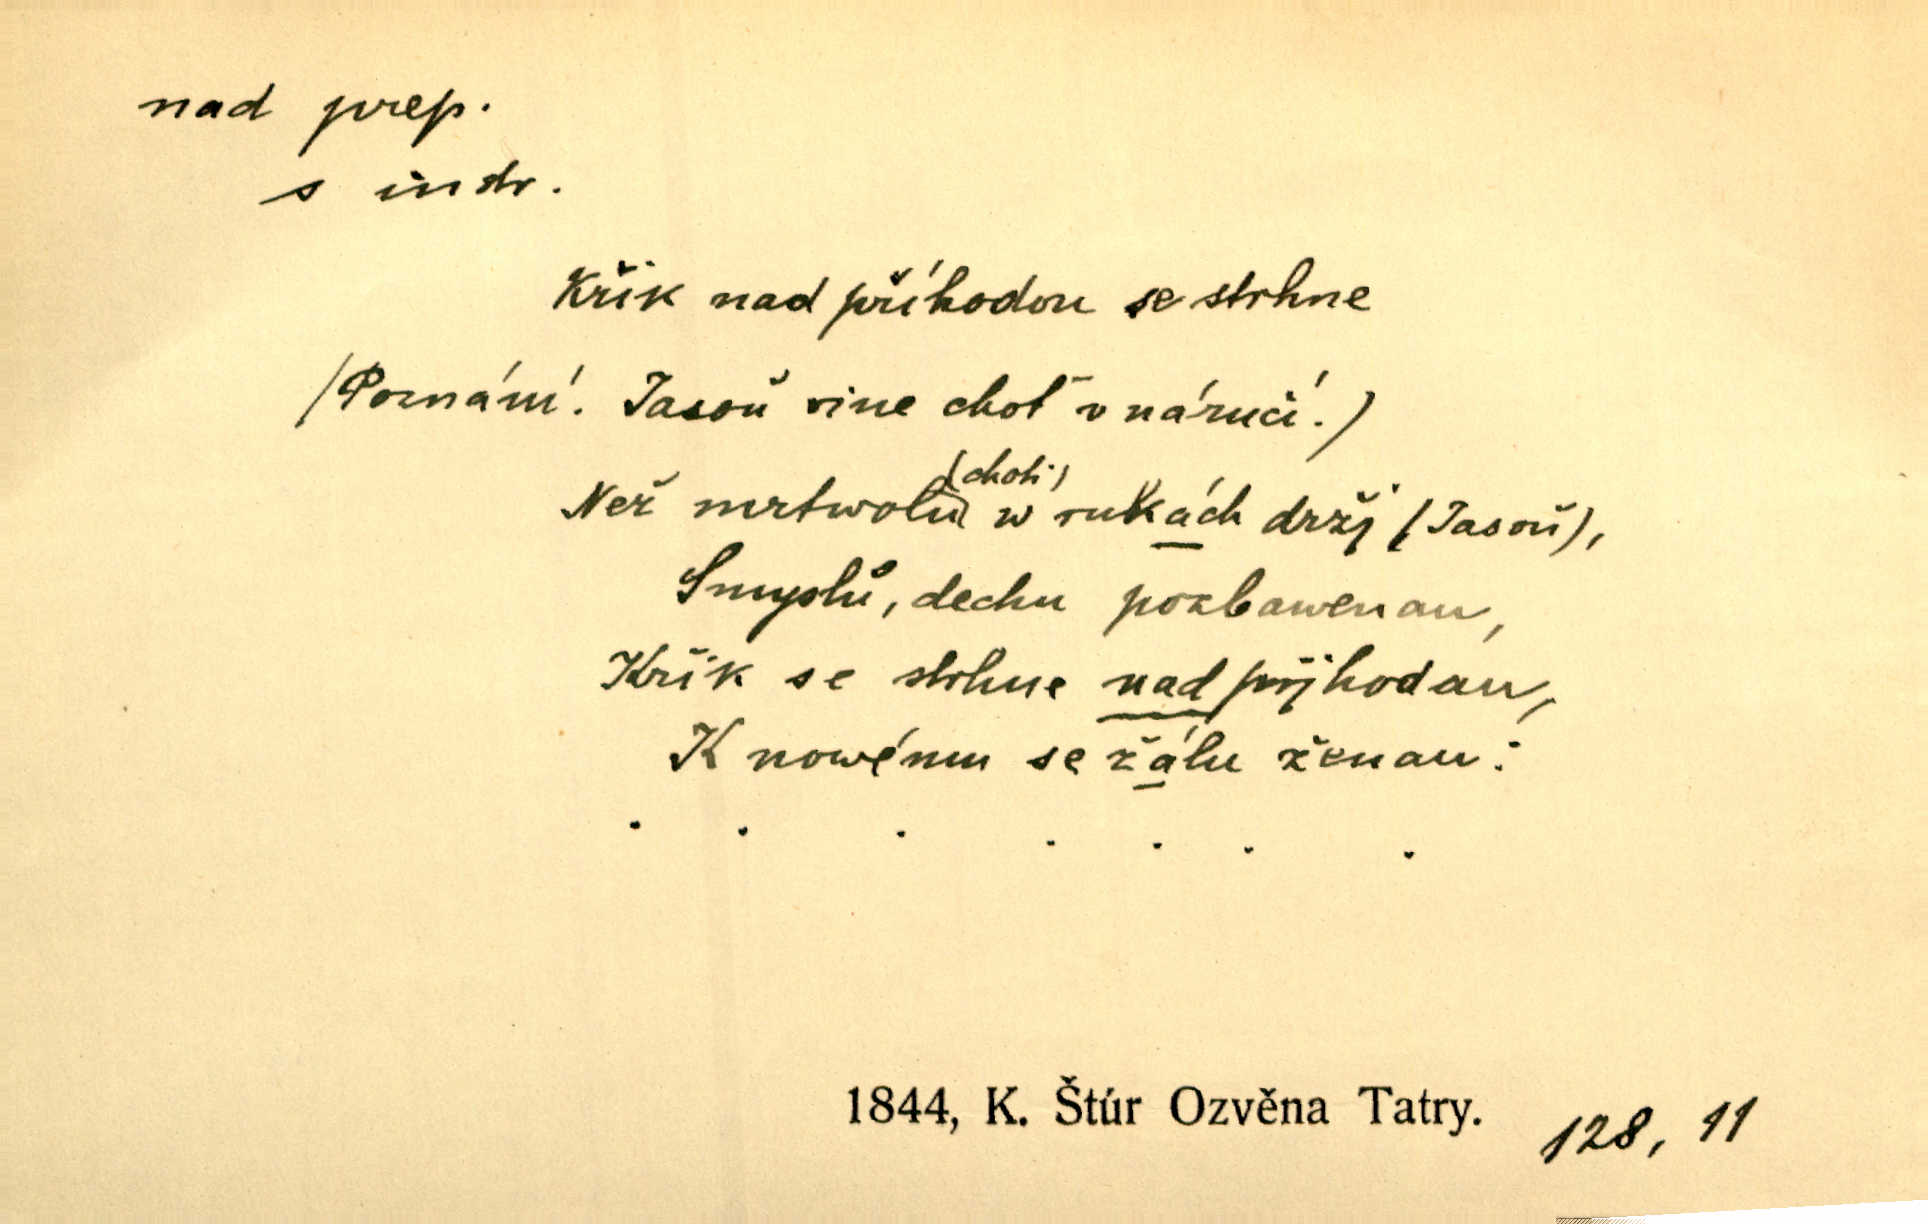 nad prep.
s instr.
Křik nad příhodou se strhne
(Poznání. Jasoň vine choť v náručí.)
(choti)
Než mrtwolu w rukách držj (Jasoň),
Smyslů, dechu pozbawenau,
Křik se strhne nad přjhodau,
K nowému se žálu ženau:
. . . . . . .
1844, K. Štúr Ozvěna Tatry. 128, 11